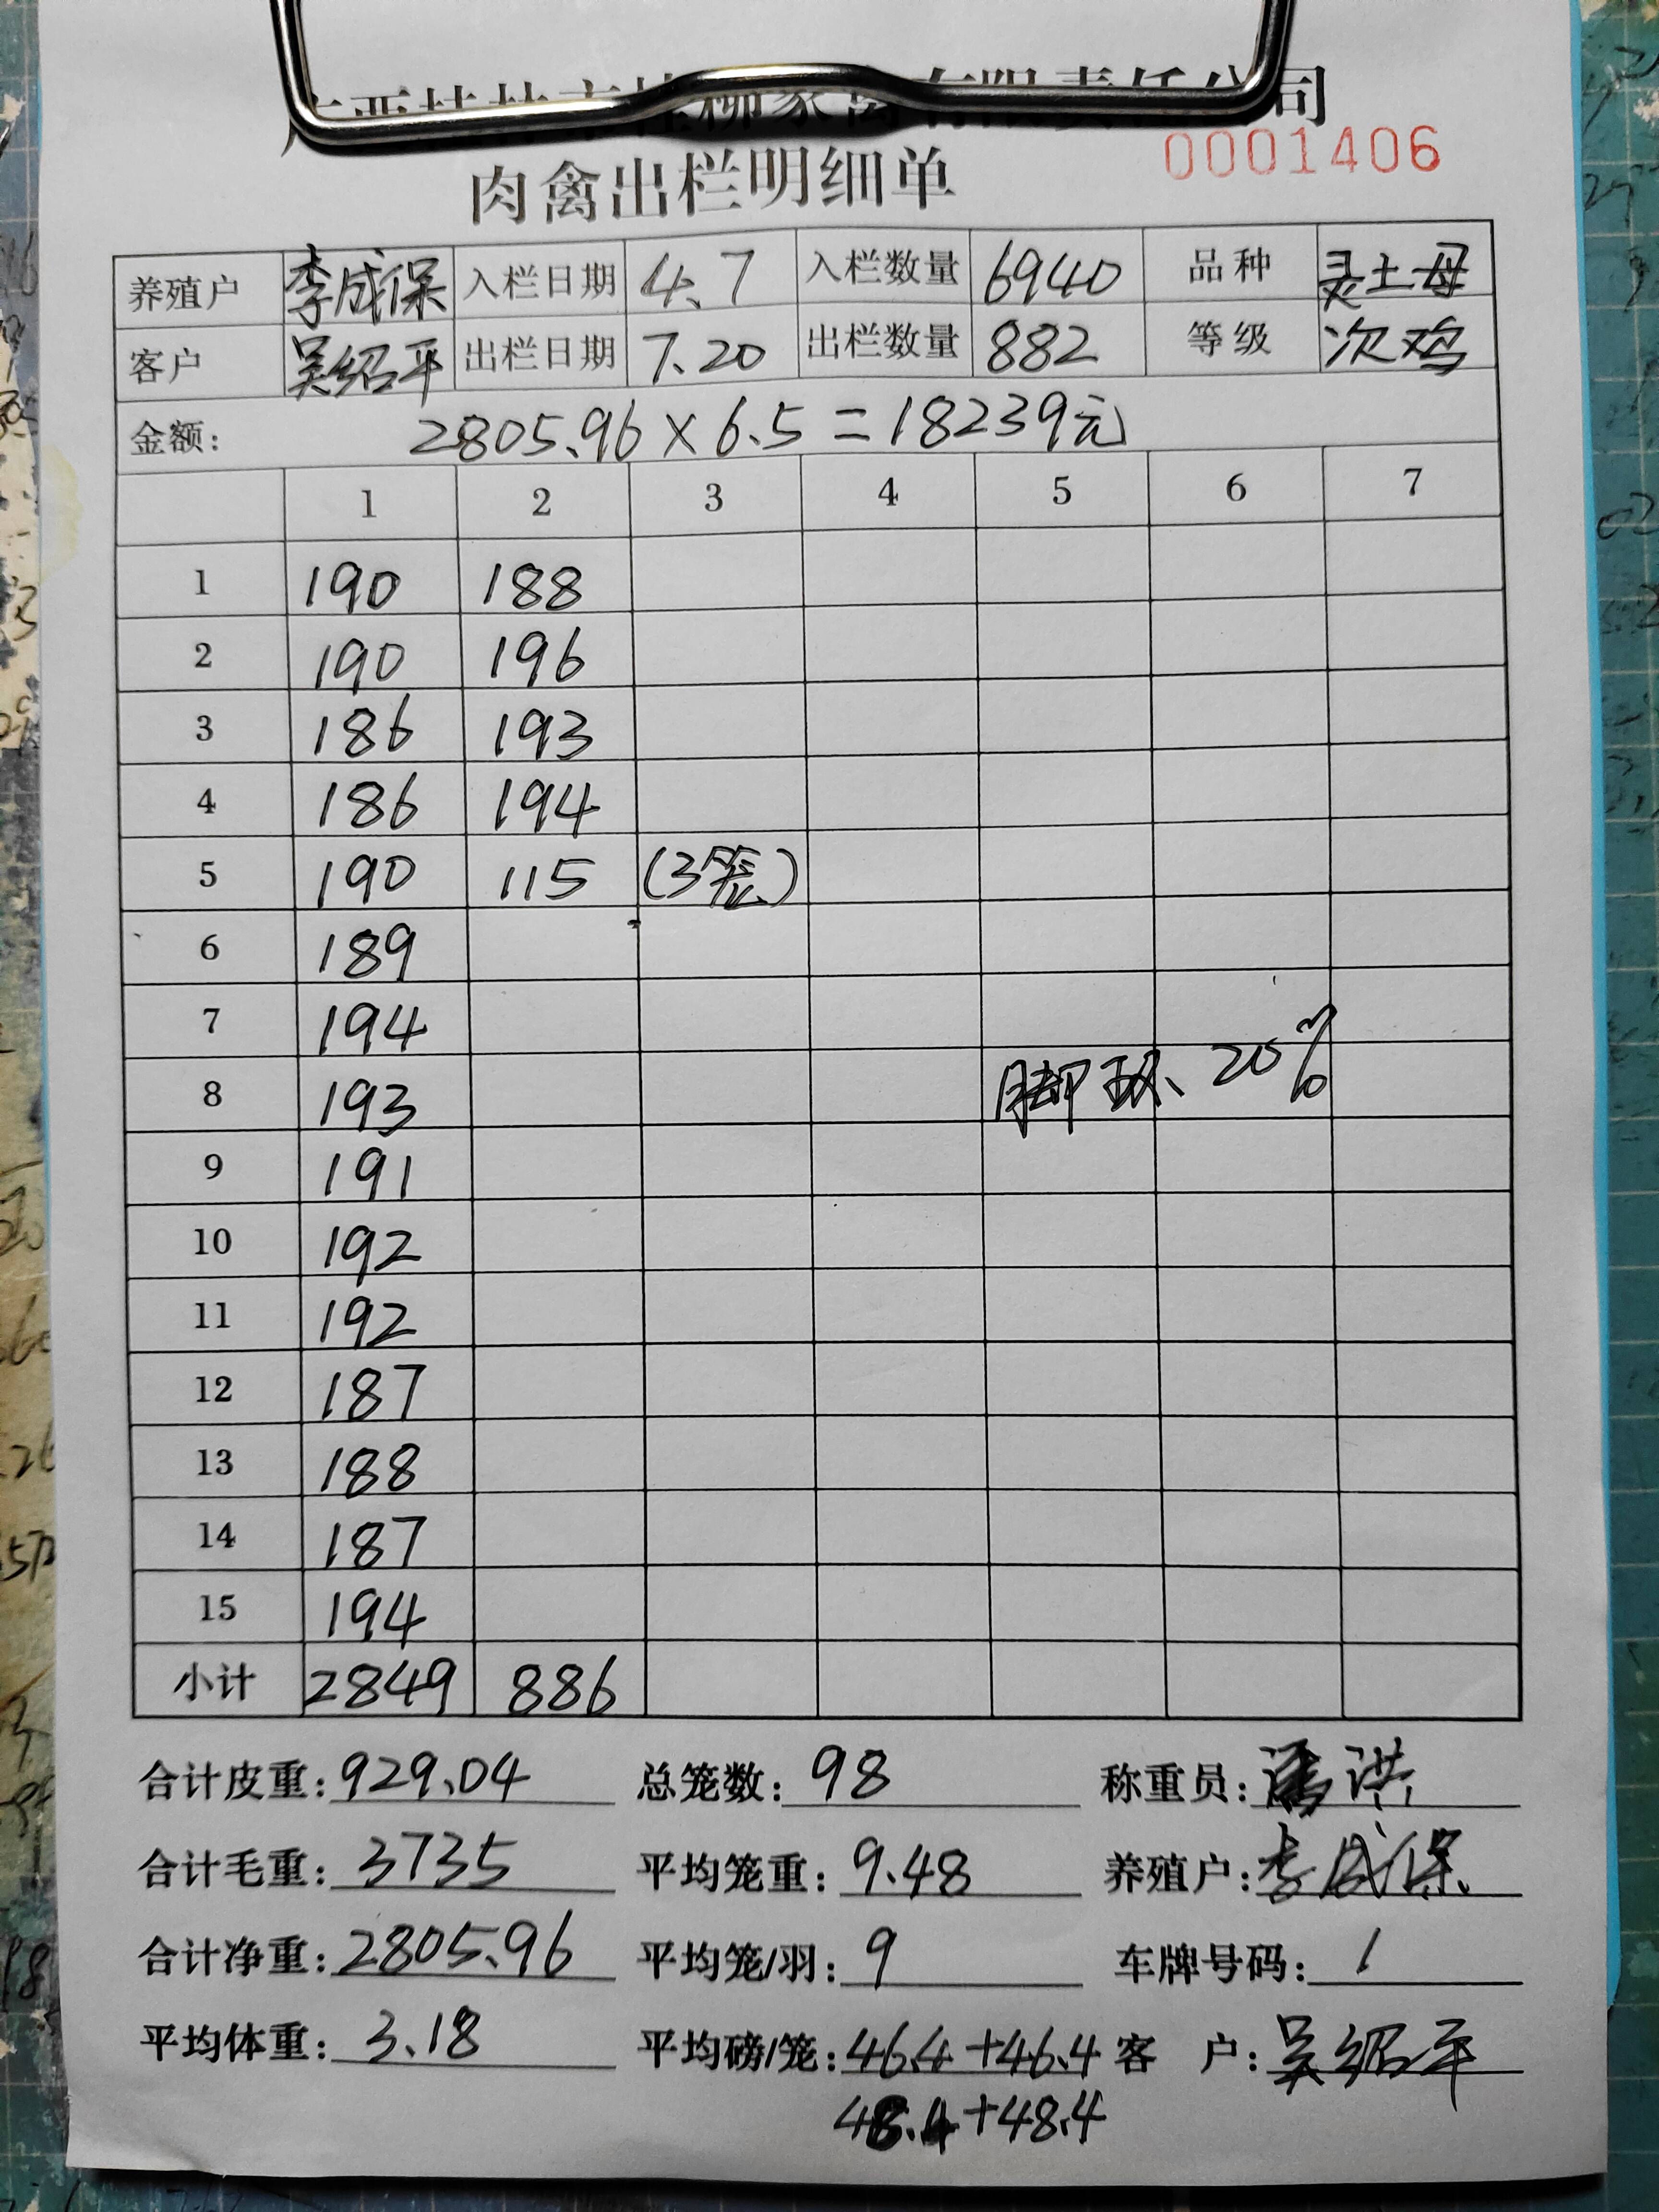 有限责任公司
肉禽出栏明细单 0001406
养殖户 李成保 入栏日期 4.7 入栏数量 6940 品种 灵土母
客户 吴绍平 出栏日期 7.20 出栏数量 882 等级 次鸡
金额: 2805.96×6.5=18239元
1 2 3 4 5 6 7
1 190 188
2 190 196
3 186 193
4 186 194
5 190 115 (3笼)
6 189
7 194
8 193 脚环、20%
9 191
10 192
11 192
12 187
13 188
14 187
15 194
小计 2849 886
合计皮重: 929.04 总笼数: 98 称重员: 潘洪
合计毛重: 3735 平均笼重: 9.48 养殖户: 李成保
合计净重: 2805.96 平均笼/羽: 9 车牌号码: 1
平均体重: 3.18 平均磅/笼: 46.4+46.4 客 户: 吴绍平
48.4+48.4